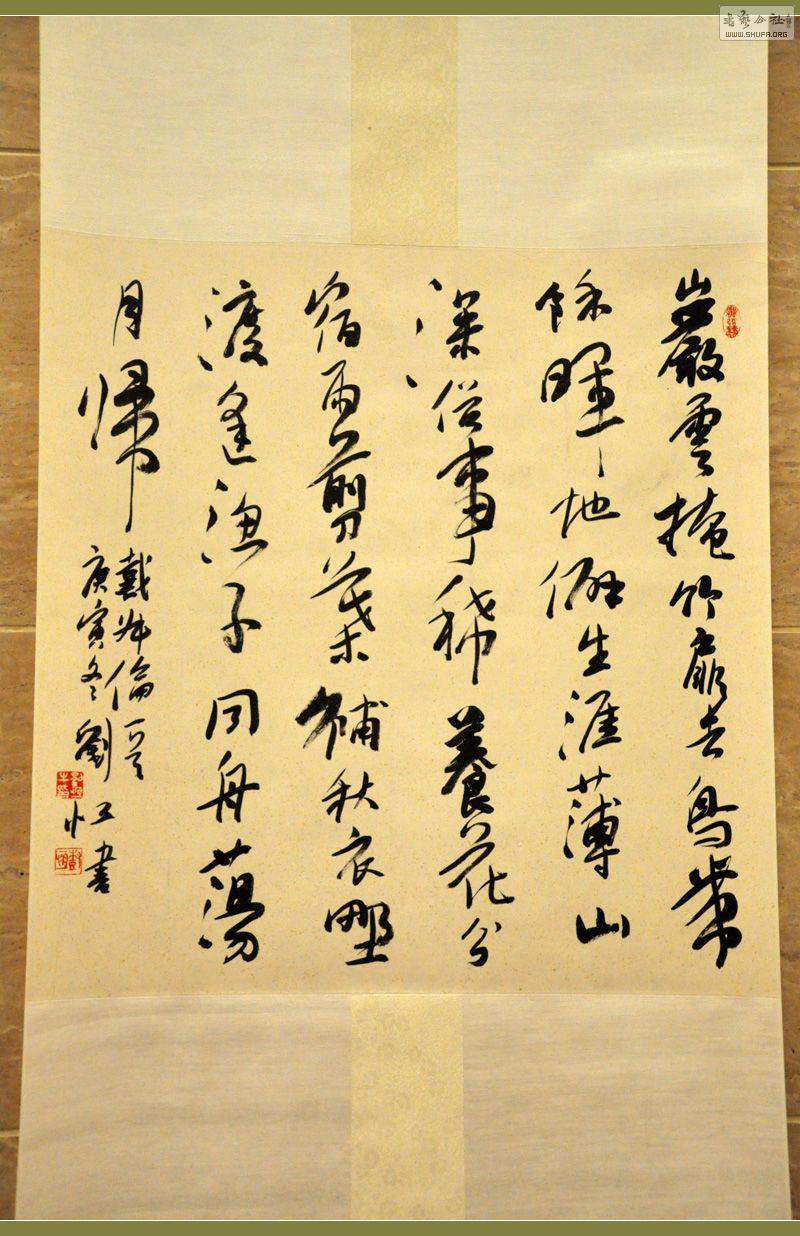 巖雲掩竹扉去鳥帶
餘暉地僻生涯薄山
深俗事稀養花分
宿雨剪葉補秋衣野
渡逢漁子同舟蕩
月歸
戴叔倫詩
庚寅冬劉
書
WWW.SHUFA.ORG